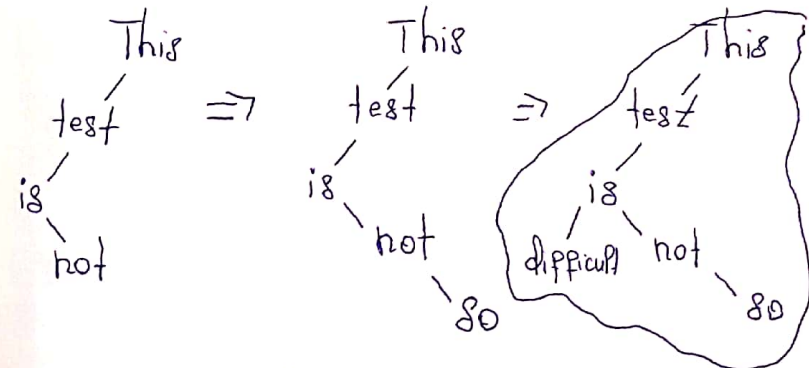 This
test
is
not
⇒
This
test
is
not
so
⇒
This
test
is
difficult not
so